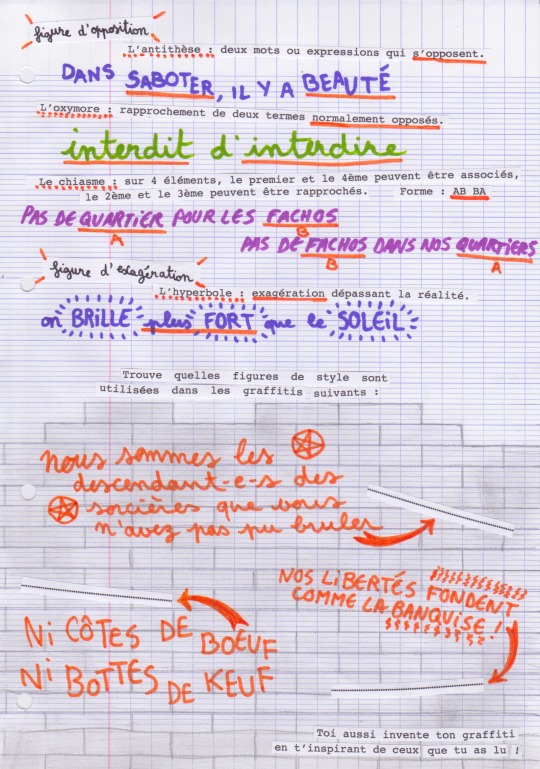 figure d'opposition
L'antithèse : deux mots ou expressions qui s'opposent.
DANS SABOTER, IL Y A BEAUTÉ
L'oxymore : rapprochement de deux termes normalement opposés.
interdit d'interdire
Le chiasme : sur 4 éléments, le premier et le 4ème peuvent être associés,
le 2ème et le 3ème peuvent être rapprochés. Forme : AB BA
PAS DE QUARTIER POUR LES FACHOS
A B
PAS DE FACHOS DANS NOS QUARTIERS
B A
figure d'exagération
L'hyperbole : exagération dépassant la réalité.
on BRILLE plus FORT que le SOLEIL
Trouve quelles figures de style sont
utilisées dans les graffitis suivants :
nous sommes les
descendant-e-s des
sorcières que vous
n'avez pas pu bruler
NOS LIBERTÉS FONDENT
COMME LA BANQUISE !
Ni CÔTES DE BOEUF
Ni BOTTES DE KEUF
Toi aussi invente ton graffiti
en t'inspirant de ceux que tu as lu !